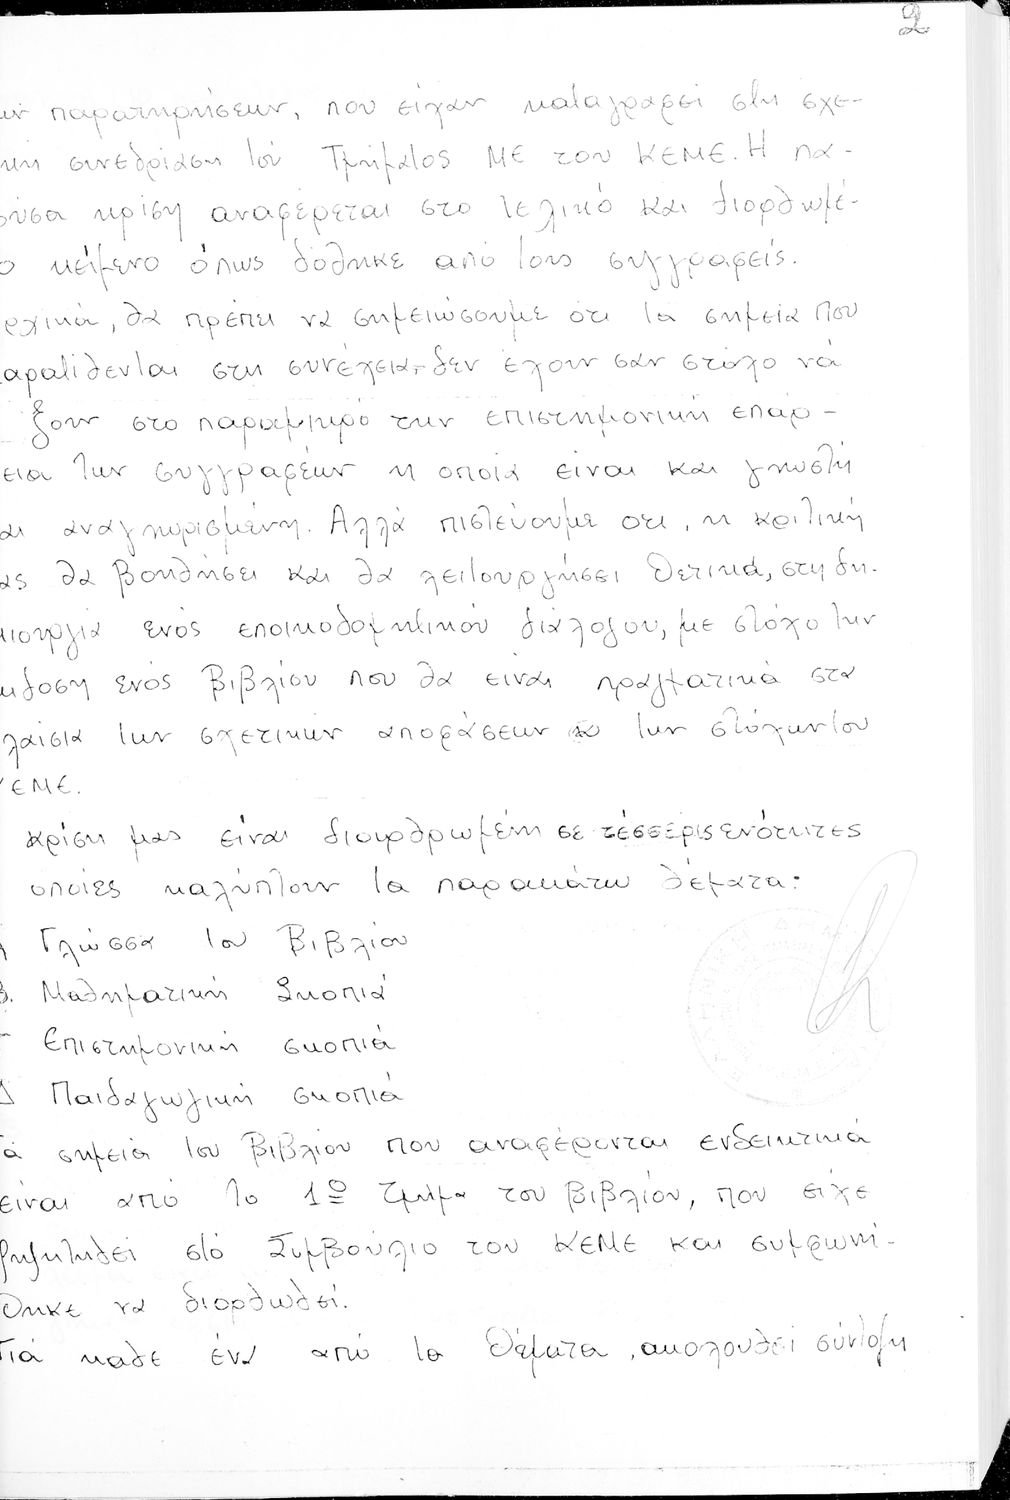 2
ων παρατηρήσεων, που είχαν καταγραφεί στη σχε-
κή συνεδρίαση τού Τμήματος ΜΕ του ΚΕΜΕ. Η πα-
ούσα κρίση αναφέρεται στο τελικό και διορθωμέ-
ο κείμενο όπως δόθηκε από τους συγγραφείς.
ρχικά, θα πρέπει να σημειώσουμε ότι τα σημεία που
αρατίθενται στη συνέχεια, δεν έχουν σαν στόχο νά
ξουν στο παραμικρό την επιστημονική επάρ-
εια των συγγραφέων η οποία είναι και γνωστή
αι αναγνωρισμένη. Αλλά πιστεύουμε οτι, η κριτική
ας θα βοηθήσει και θα λειτουργήσει θετικά, στη δη-
μιουργία ενός εποικοδομητικού διάλογου, με στόχο την
κδοση ενός βιβλίου που θα είναι πραγματικά στα
λαίσια των σχετικών αποφάσεων των στόχων του
ΚΕΜΕ.
κρίση μας είναι διαρθρωμένη σε τέσσερις ενότητες
οποίες καλύπτουν τα παρακάτω θέματα:
Γλώσσα του Βιβλίου
Β. Μαθηματική Σκοπιά
Γ Επιστημονική σκοπιά
Δ Παιδαγωγική σκοπιά
Τα σημεία του Βιβλίου που αναφέρονται ενδεικτικά
είναι από το 1ο Τμήμα του βιβλίου, που είχε
συζητηθεί στό Συμβούλιο του ΚΕΜΕ και συμφωνή-
θηκε να διορθωθεί.
Γιά καθε ένα από τα θέματα, ακολουθεί σύνταξη